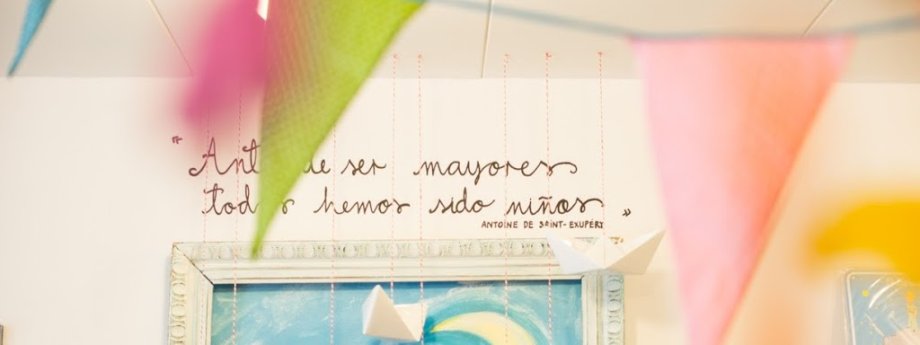 "Antes de ser mayores
todos hemos sido niños"
ANTOINE DE SAINT-EXUPÉRY